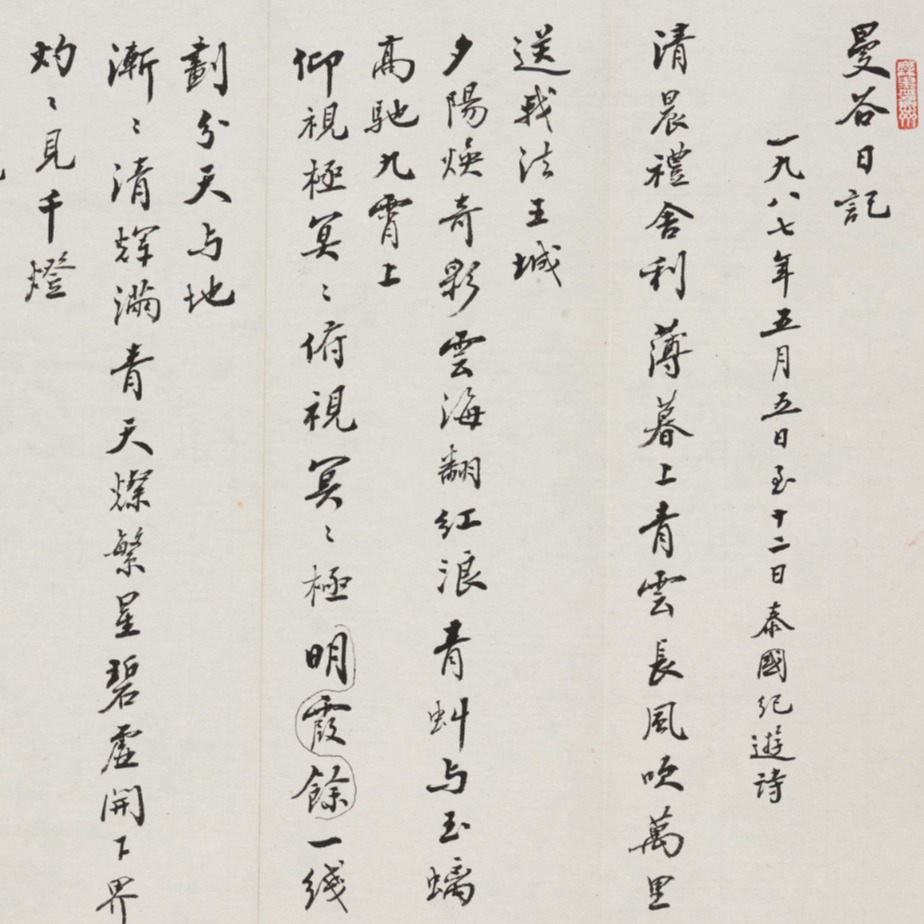 曼谷日記
一九八七年五月五日至十二日泰國紀遊詩
清晨禮舍利薄暮上青雲長風吹萬里
送我法王城
夕陽煥奇彩雲海翻紅浪青虯与玉螭
高馳九霄上
仰視極冥〻俯視冥〻極明霞餘一线
劃分天与地
漸〻清輝滿青天燦繁星碧虛開下界
灼〻見千燈